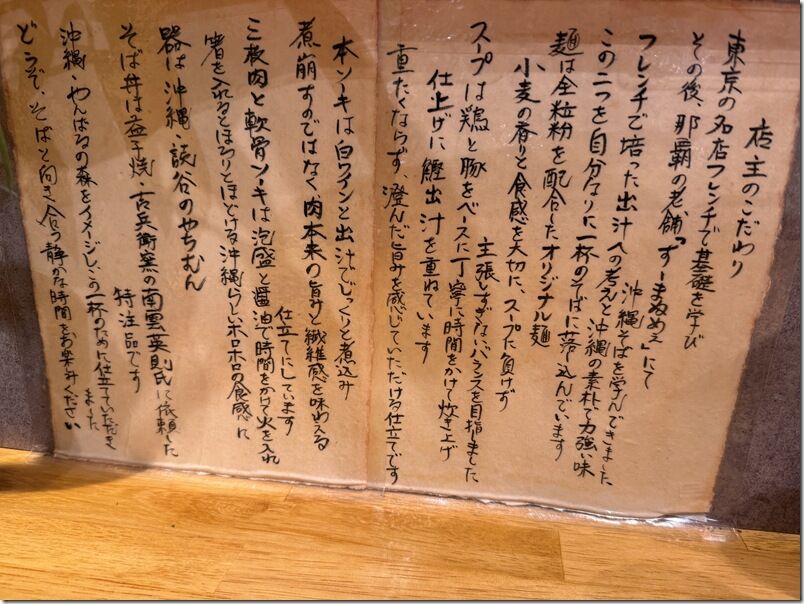 店主のこだわり
東京の名店フレンチで基礎を学び
その後、那覇の老舗「すーまぬめぇ」にて
沖縄そばを学んできました
フレンチで培った出汁への考えと沖縄の素朴で力強い味
この二つを自分なりに一杯のそばに落し込んでいます
麺は全粒粉を配合したオリジナル麺
小麦の香りと食感を大切に、スープに負けず
主張しすぎないバランスを目指しました
スープは鶏と豚をベースに丁寧に時間をかけて炊き上げ
仕上げに鰹出汁を重ねています
重たくならず、澄んだ旨みを感じていただける仕立てです
本ソーキは白ワインと出汁でじっくりと煮込み
煮崩すのではなく肉本来の旨みと繊維感を味わえる
仕立てにしています
三枚肉と軟骨ソーキは泡盛と醤油で時間をかけて火を入れ
箸を入れるとほろりとほどける沖縄らしいホロホロの食感に
器は沖縄・読谷のやちむん
そば丼は益子焼・古兵衛窯の南雲英則氏に依頼した
特注品です
沖縄・やんばるの森をイメージし、この一杯のために仕立ていただき
ました
どうぞ、そばと向き合う静かな時間をお楽しみください